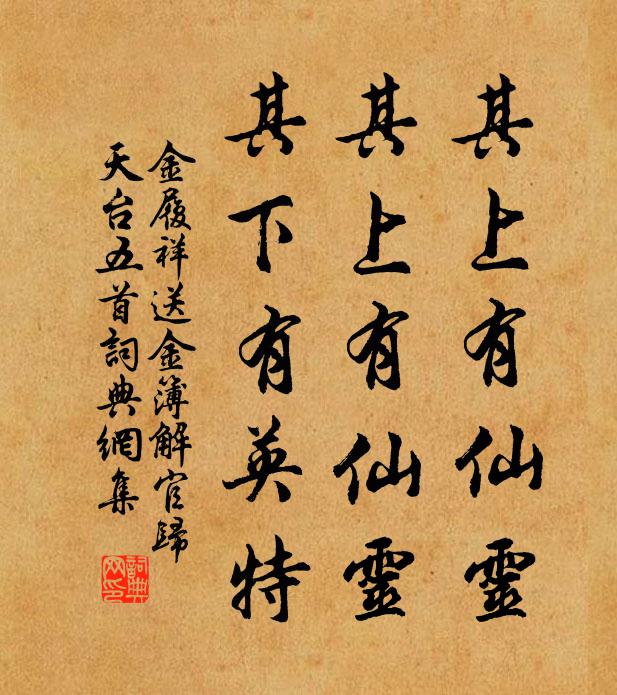 其上有仙靈
其上有仙靈
其下有英特
金履祥送金簿解官歸
天台五首詞典網集
詞典網印